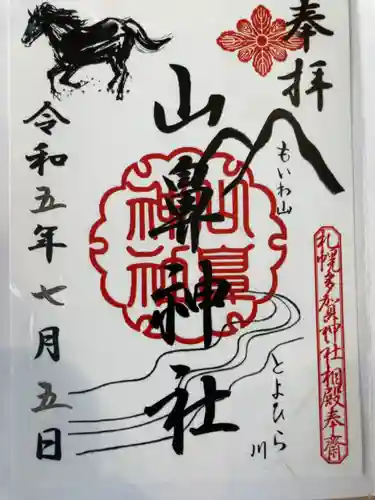 奉拝
もいわ山
札幌多賀神社相殿奉斎
山鼻神社
山鼻神社
とよひら川
令和五年七月五日